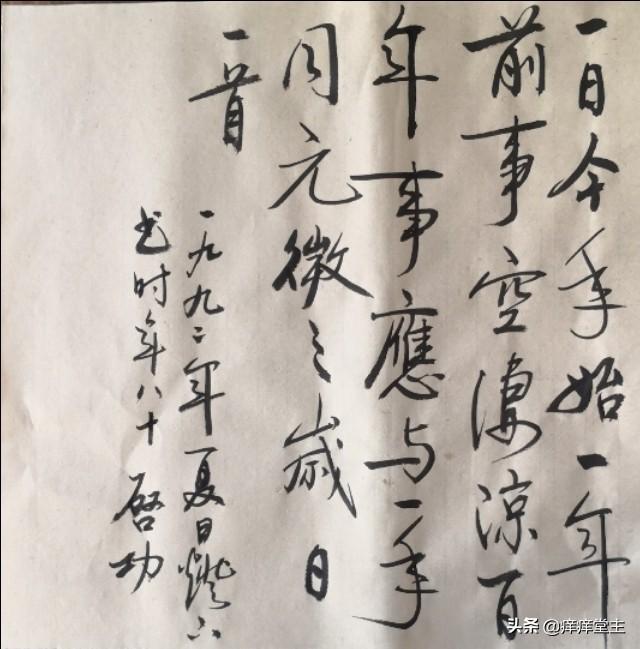 一日今年始一年
前事空凄涼百
年事應与一年
同元微之歲日
一首
一九九二年夏日
书时年八十 啓功
头条 @痒痒堂主